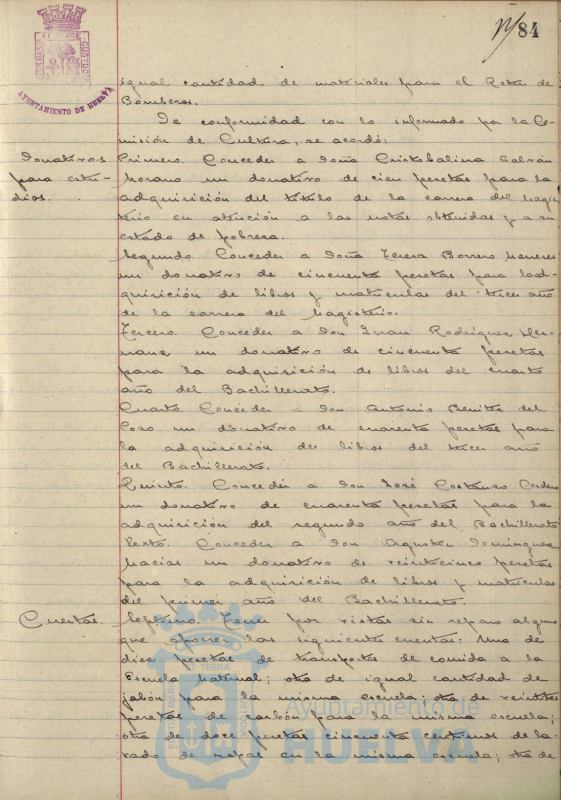 84
AYUNTAMIENTO DE HUELVA
igual cantidad de materiales para el Retén de
Bomberos.
De conformidad con lo informado por la Co-
misión de Cultura, se acordó:
Donativos
para estu-
dios.
Primero. Conceder a Doña Cristobalina Galván
Morano un donativo de cien pesetas para la
adquisición del título de la carrera del Magis-
terio en atención a las notas obtenidas y a su
estado de pobresa.
Segundo. Conceder a Doña Teresa Borrero
un donativo de cincuenta pesetas para la ad-
quisición de libros y matriculas del tercer año
de la carrera del Magisterio.
Tercero. Conceder a Don Juan Rodriguez
un donativo de cincuenta pesetas
para la adquisición de libros del cuarto
año del Bachillerato.
Cuarto. Conceder a Don Antonio Benitez del
Pozo un donativo de cuarenta pesetas para
la adquisición de libros del tercer año
del Bachillerato.
Quinto. Conceder a Don José Costanzo Cordero
un donativo de cuarenta pesetas para la
adquisición del segundo año del Bachillerato
Sexto. Conceder a Don Agustin Dominguez
Macías un donativo de veinticinco pesetas
para la adquisición de libros y matriculas
del primer año del Bachillerato.
Cuentas.
Septimo. Tener por vistas sin reparo alguno
que oponer las siguientes cuentas: Una de
diez pesetas de transportes de comida a la
Escuela Maternal; otra de igual cantidad de
jabón para la misma escuela; otra de veintitres
pesetas de carbón para la misma escuela;
otra de doce pesetas cincuenta centimos de la-
vado de ropas en la misma escuela; otra de
Ayuntamiento de
HUELVA